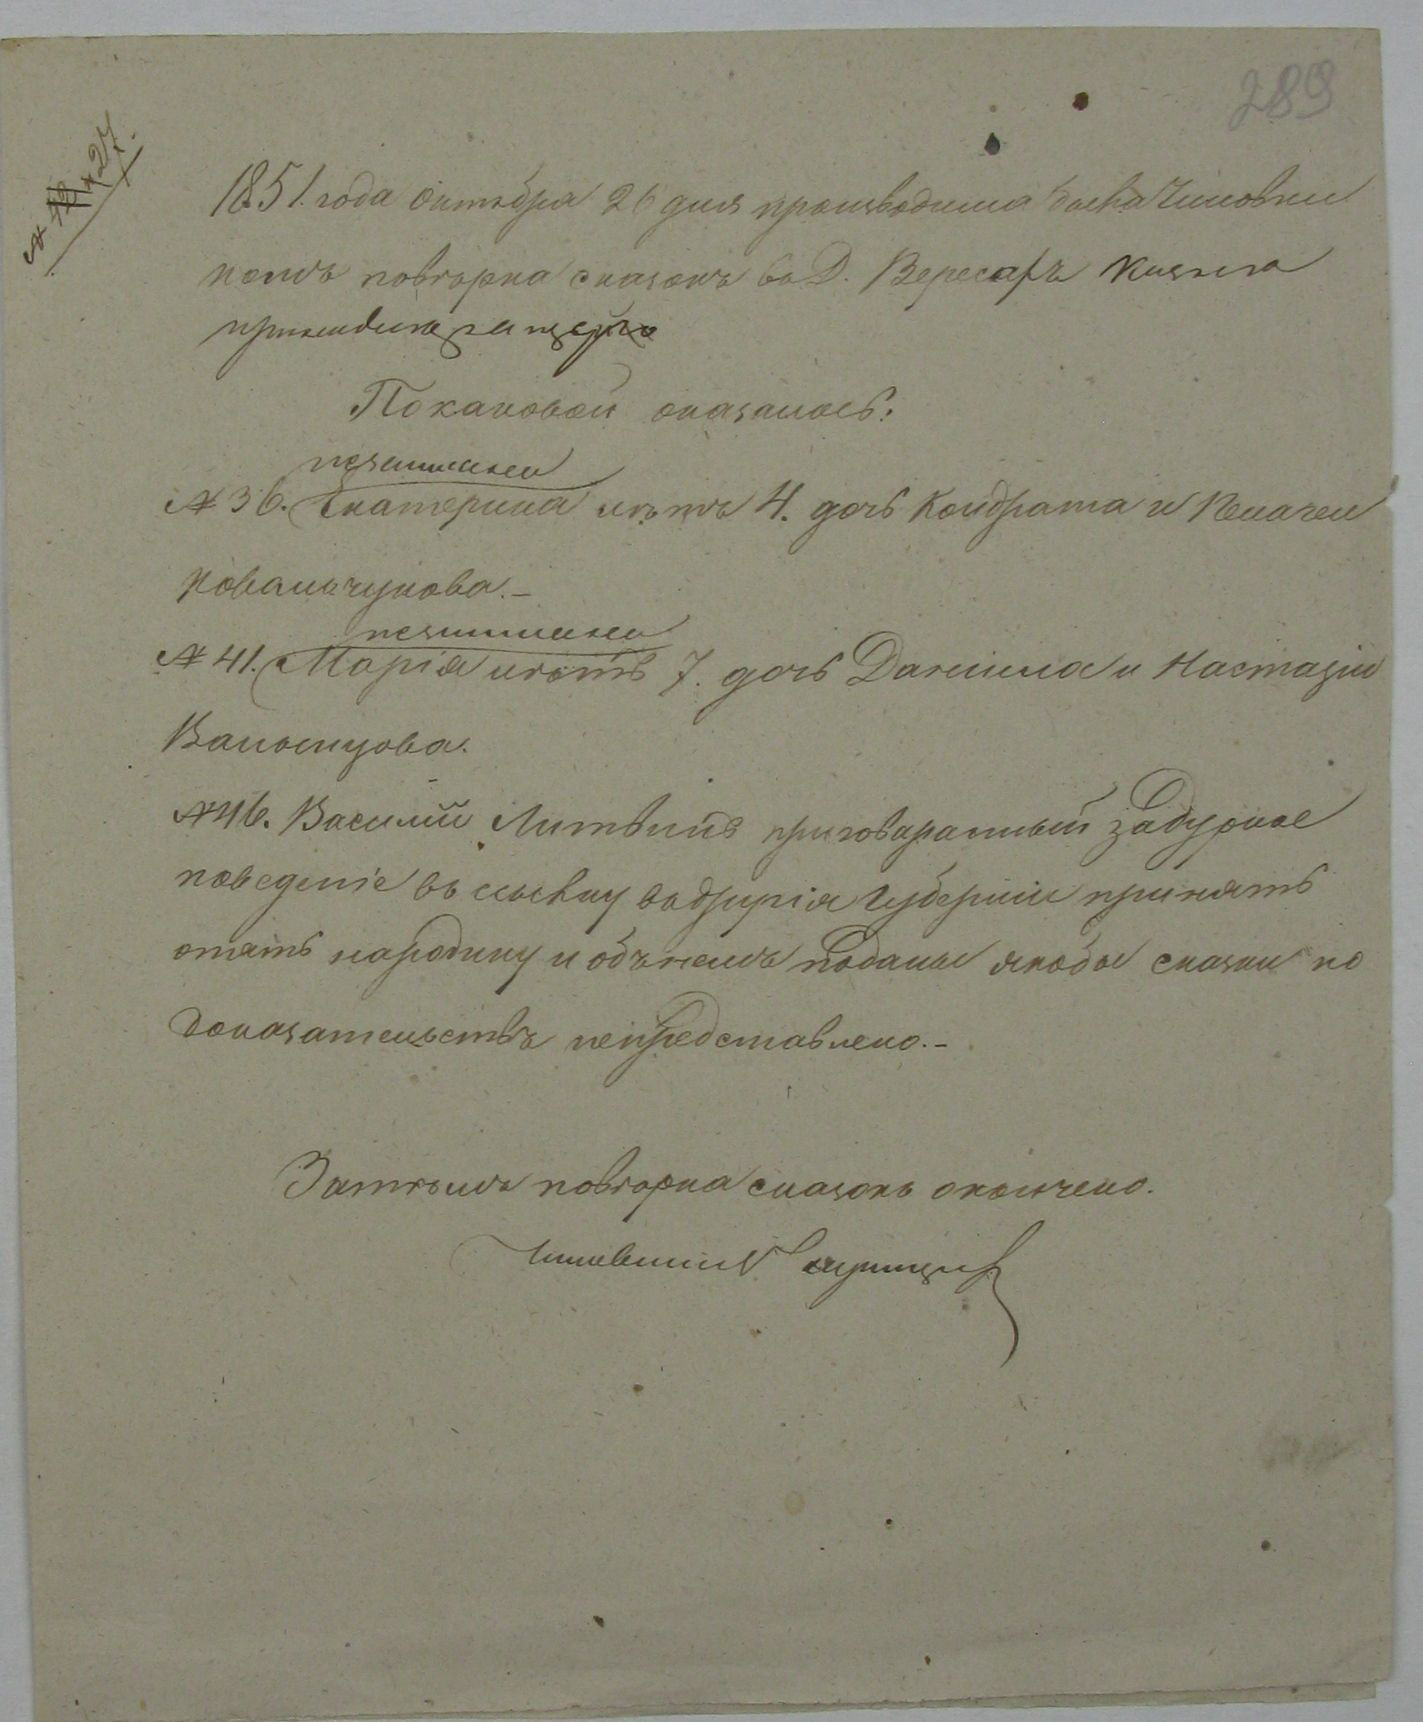 289
1851. года октября 26 дня производима была Чиновни
комъ повѣрка сказокъ въ Д. Вересахъ Князя
По каковой оказалось:
незаписана
№ 36. Екатерина лѣтъ 4. дочь Кондрата и Пелагеи
Ковальчукова.-
незаписана
№ 41. Марія лѣтъ 7. дочь Даніила и Настазіи
№ 46. Василій Литвинъ приговаранный за дурное
поведеніе въ ссылку въ другія Губерніи принятъ
опять народину и объ немъ поданы якобы сказки но
доказательствъ непредставлено.-
Затѣмъ повѣрка сказокъ окончено.
Чиновникъ